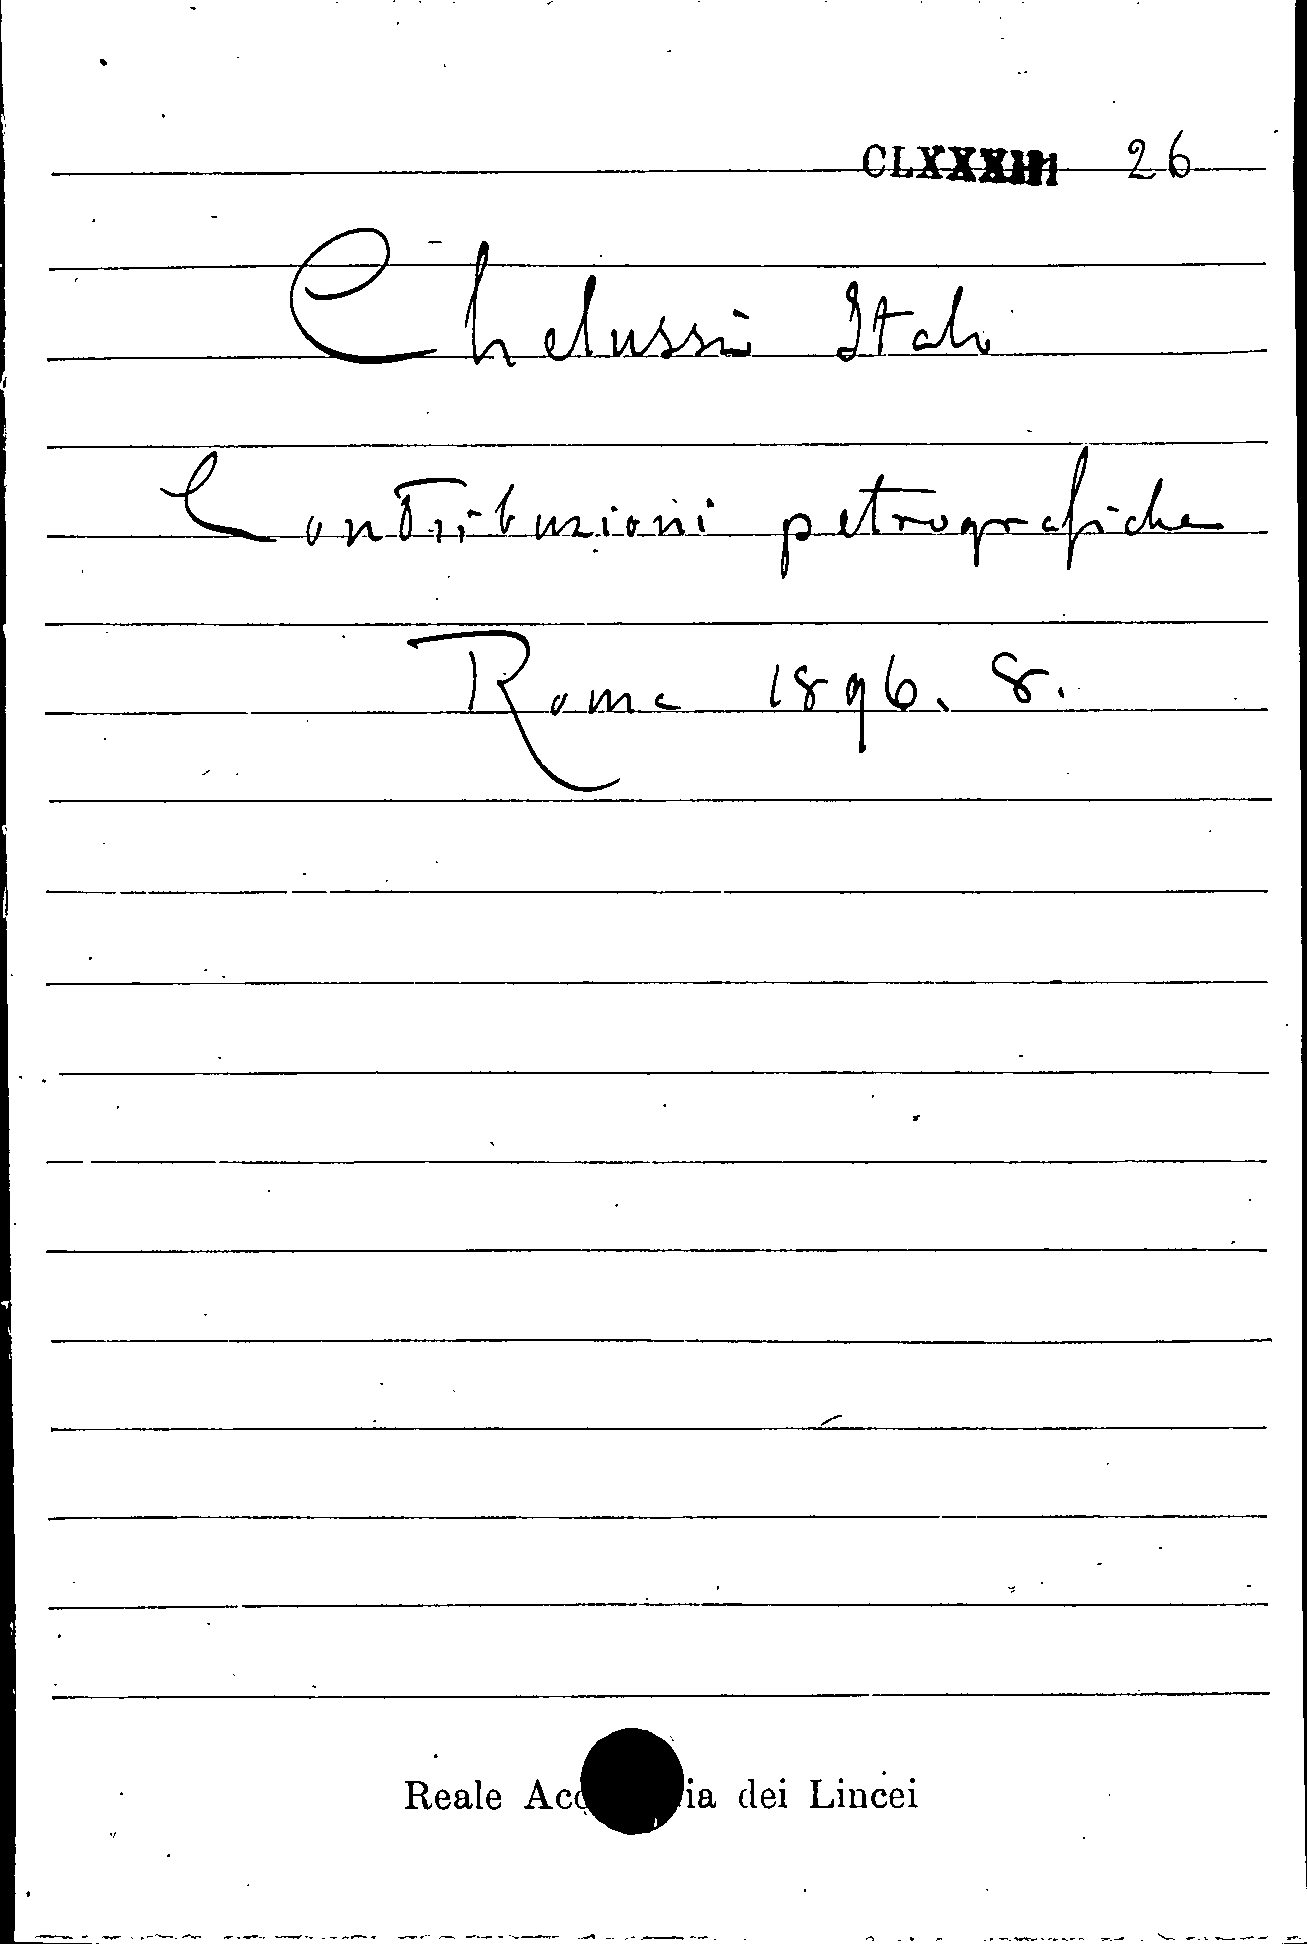 26
Chelussi Italo
Contribuzioni petrografiche
Roma 1896. 8.
Reale dei Lincei